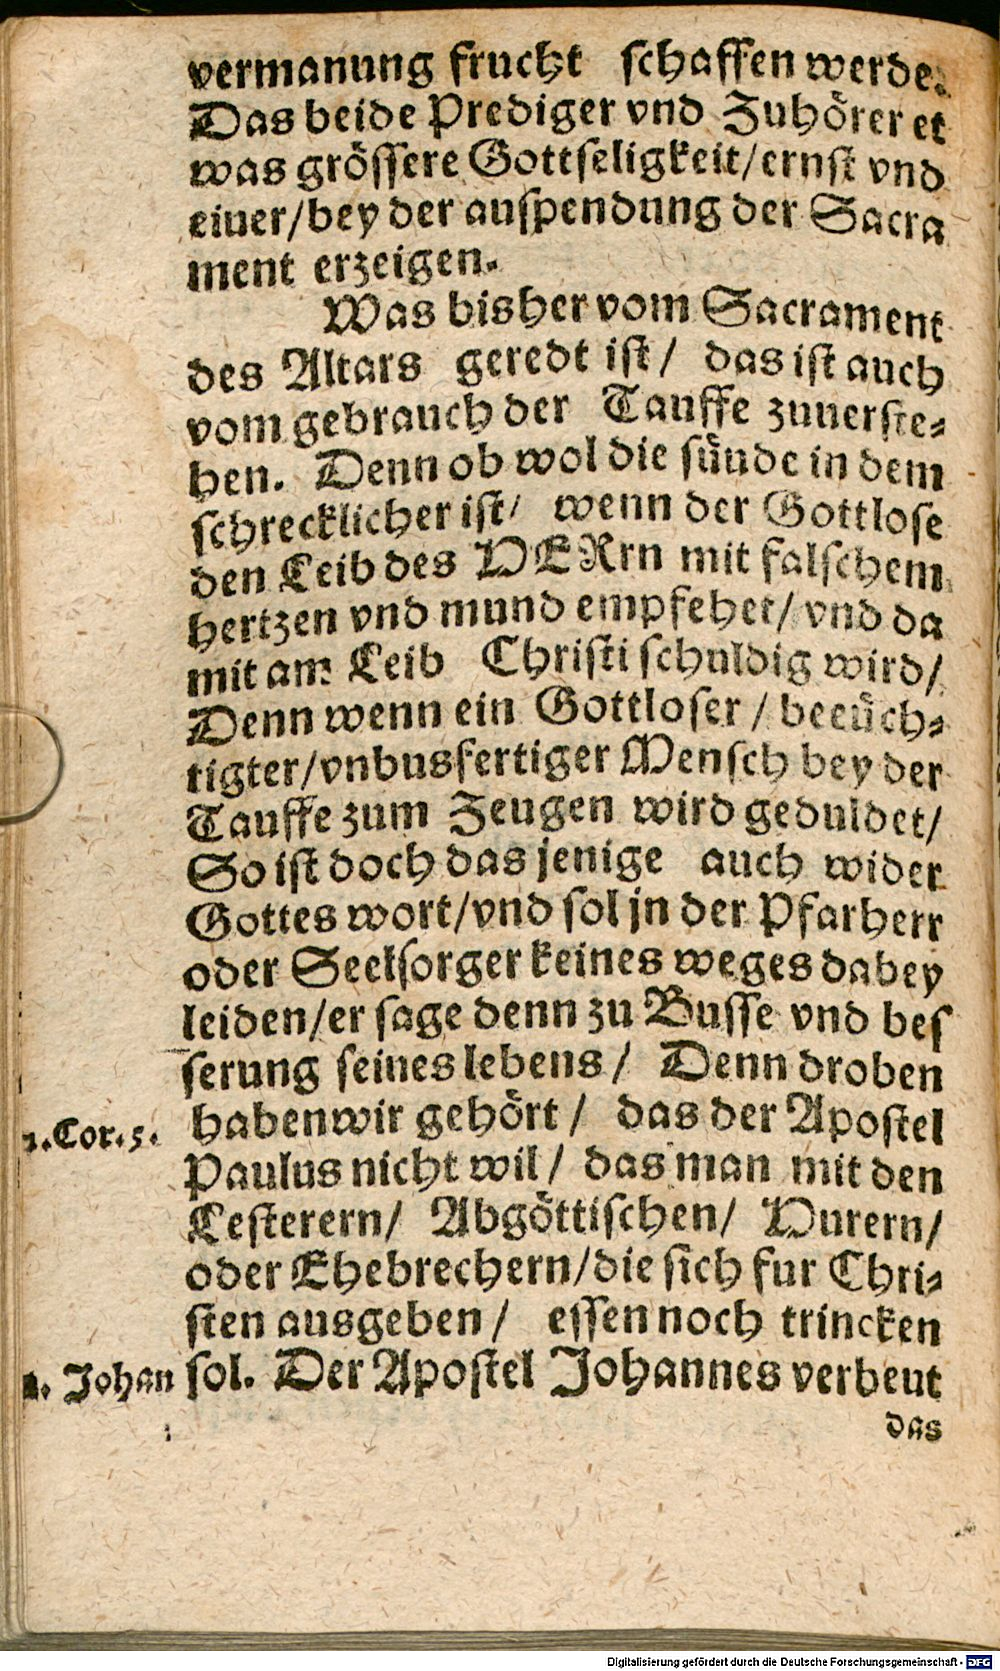 vermanung frucht schaffen werde.
Das beide Prediger vnd Zuhörer et
was grössere Gottseligkeit/ernst vnd
eiuer/bey der auspendung der Sacra
ment erzeigen.
Was bisher vom Sacrament
des Altars geredt ist/ das ist auch
vom gebrauch der Tauffe zuuerste-
hen. Denn ob wol die sünde in dem
schrecklicher ist/ wenn der Gottlose
den Leib des HERrn mit falschem
hertzen vnd mund empfehet/ vnd da
mit am Leib Christi schuldig wird/
Denn wenn ein Gottloser / berüch-
tigter/vnbusfertiger Mensch bey der
Tauffe zum Zeugen wird geduldet/
So ist doch das jenige auch wider
Gottes wort/vnd sol jn der Pfarherr
oder Seelsorger keines weges dabey
leiden/er sage denn zu Busse vnd bes
serung seines lebens/ Denn droben
1.Cor.5. haben wir gehört/ das der Apostel
Paulus nicht wil/ das man mit den
Lesterern/ Abgöttischen/ Hurern/
oder Ehebrechern/die sich fur Chri-
sten ausgeben/ essen noch trincken
1. Johan sol. Der Apostel Johannes verbeut
das
Digitalisierung gefördert durch die Deutsche Forschungsgemeinschaft - DFG